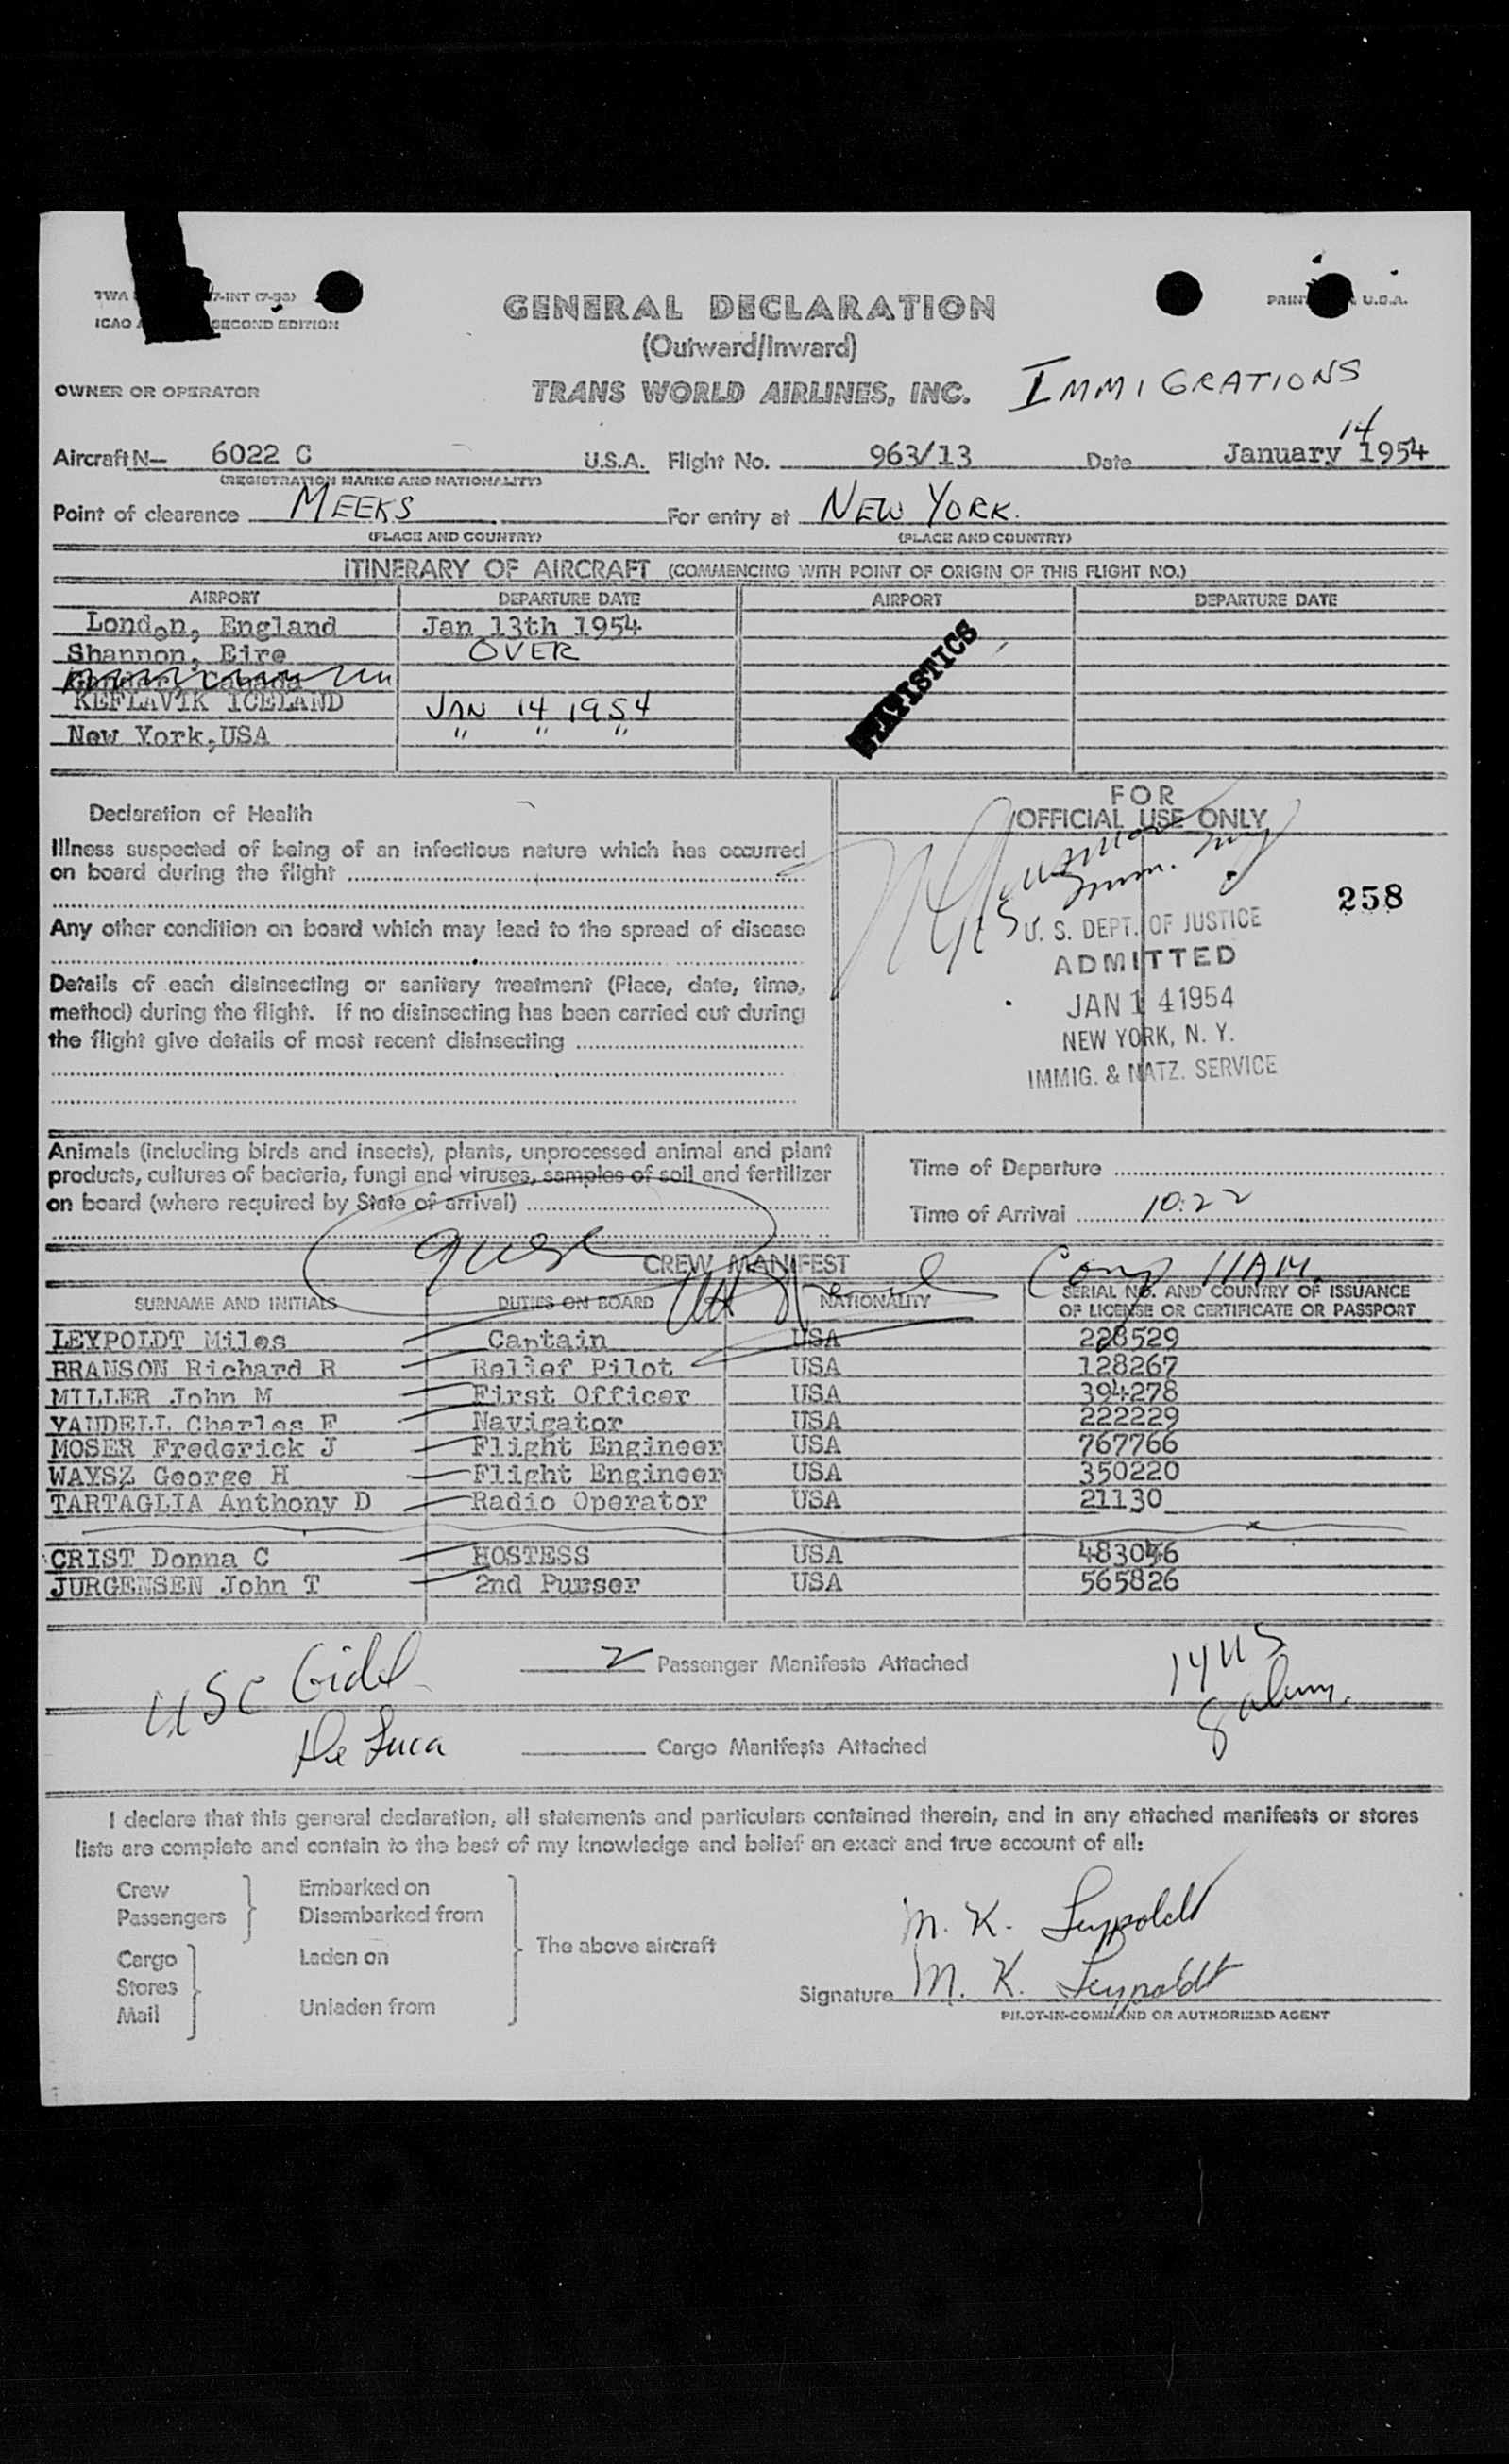 TWA 7-INT (7-53)
ICAO SECOND EDITION
PRIN U.S.A.
GENERAL DECLARATION
(Outward/Inward)
OWNER OR OPERATOR TRANS WORLD AIRLINES, INC. IMMIGRATIONS
Aircraft N— 6022 C U.S.A. Flight No. 963/13 Date January 14 1954
(REGISTRATION MARKS AND NATIONALITY)
Point of clearance MEEKS For entry at NEW YORK.
(PLACE AND COUNTRY) (PLACE AND COUNTRY)
ITINERARY OF AIRCRAFT (COMMENCING WITH POINT OF ORIGIN OF THIS FLIGHT NO.)
AIRPORT DEPARTURE DATE AIRPORT DEPARTURE DATE
London, England Jan 13th 1954
Shannon, Eire OVER
Gander, Canada
KEFLAVIK ICELAND JAN 14 1954
New York, USA " " "
STATISTICS
Declaration of Health
Illness suspected of being of an infectious nature which has occurred
on board during the flight
Any other condition on board which may lead to the spread of disease
Details of each disinsecting or sanitary treatment (Place, date, time,
method) during the flight. If no disinsecting has been carried out during
the flight give details of most recent disinsecting
FOR
OFFICIAL USE ONLY
258
U. S. DEPT. OF JUSTICE
ADMITTED
JAN 14 1954
NEW YORK, N. Y.
IMMIG. & NATZ. SERVICE
Animals (including birds and insects), plants, unprocessed animal and plant
products, cultures of bacteria, fungi and viruses, samples of soil and fertilizer
on board (where required by State of arrival)
Time of Departure
Time of Arrival 10:22
CREW MANIFEST
SURNAME AND INITIALS DUTIES ON BOARD NATIONALITY SERIAL NO. AND COUNTRY OF ISSUANCE
OF LICENSE OR CERTIFICATE OR PASSPORT
LEYPOLDT Miles Captain USA 228529
BRANSON Richard R Relief Pilot USA 128267
MILLER John M First Officer USA 394278
YAUDELL Charles F Navigator USA 222229
MOSER Frederick J Flight Engineer USA 767766
WAYSZ George H Flight Engineer USA 350220
TARTAGLIA Anthony D Radio Operator USA 21130
CRIST Donna C HOSTESS USA 483046
JURGENSEN John T 2nd Purser USA 565826
USC Gidel
De Luca
2 Passenger Manifests Attached
Cargo Manifests Attached
14 US
8 alien
I declare that this general declaration, all statements and particulars contained therein, and in any attached manifests or stores
lists are complete and contain to the best of my knowledge and belief an exact and true account of all:
Crew Embarked on
Passengers Disembarked from
Cargo Laden on
Stores
Mail Unladen from
The above aircraft
M. K. Leypoldt
Signature M. K. Leypoldt
PILOT-IN-COMMAND OR AUTHORIZED AGENT